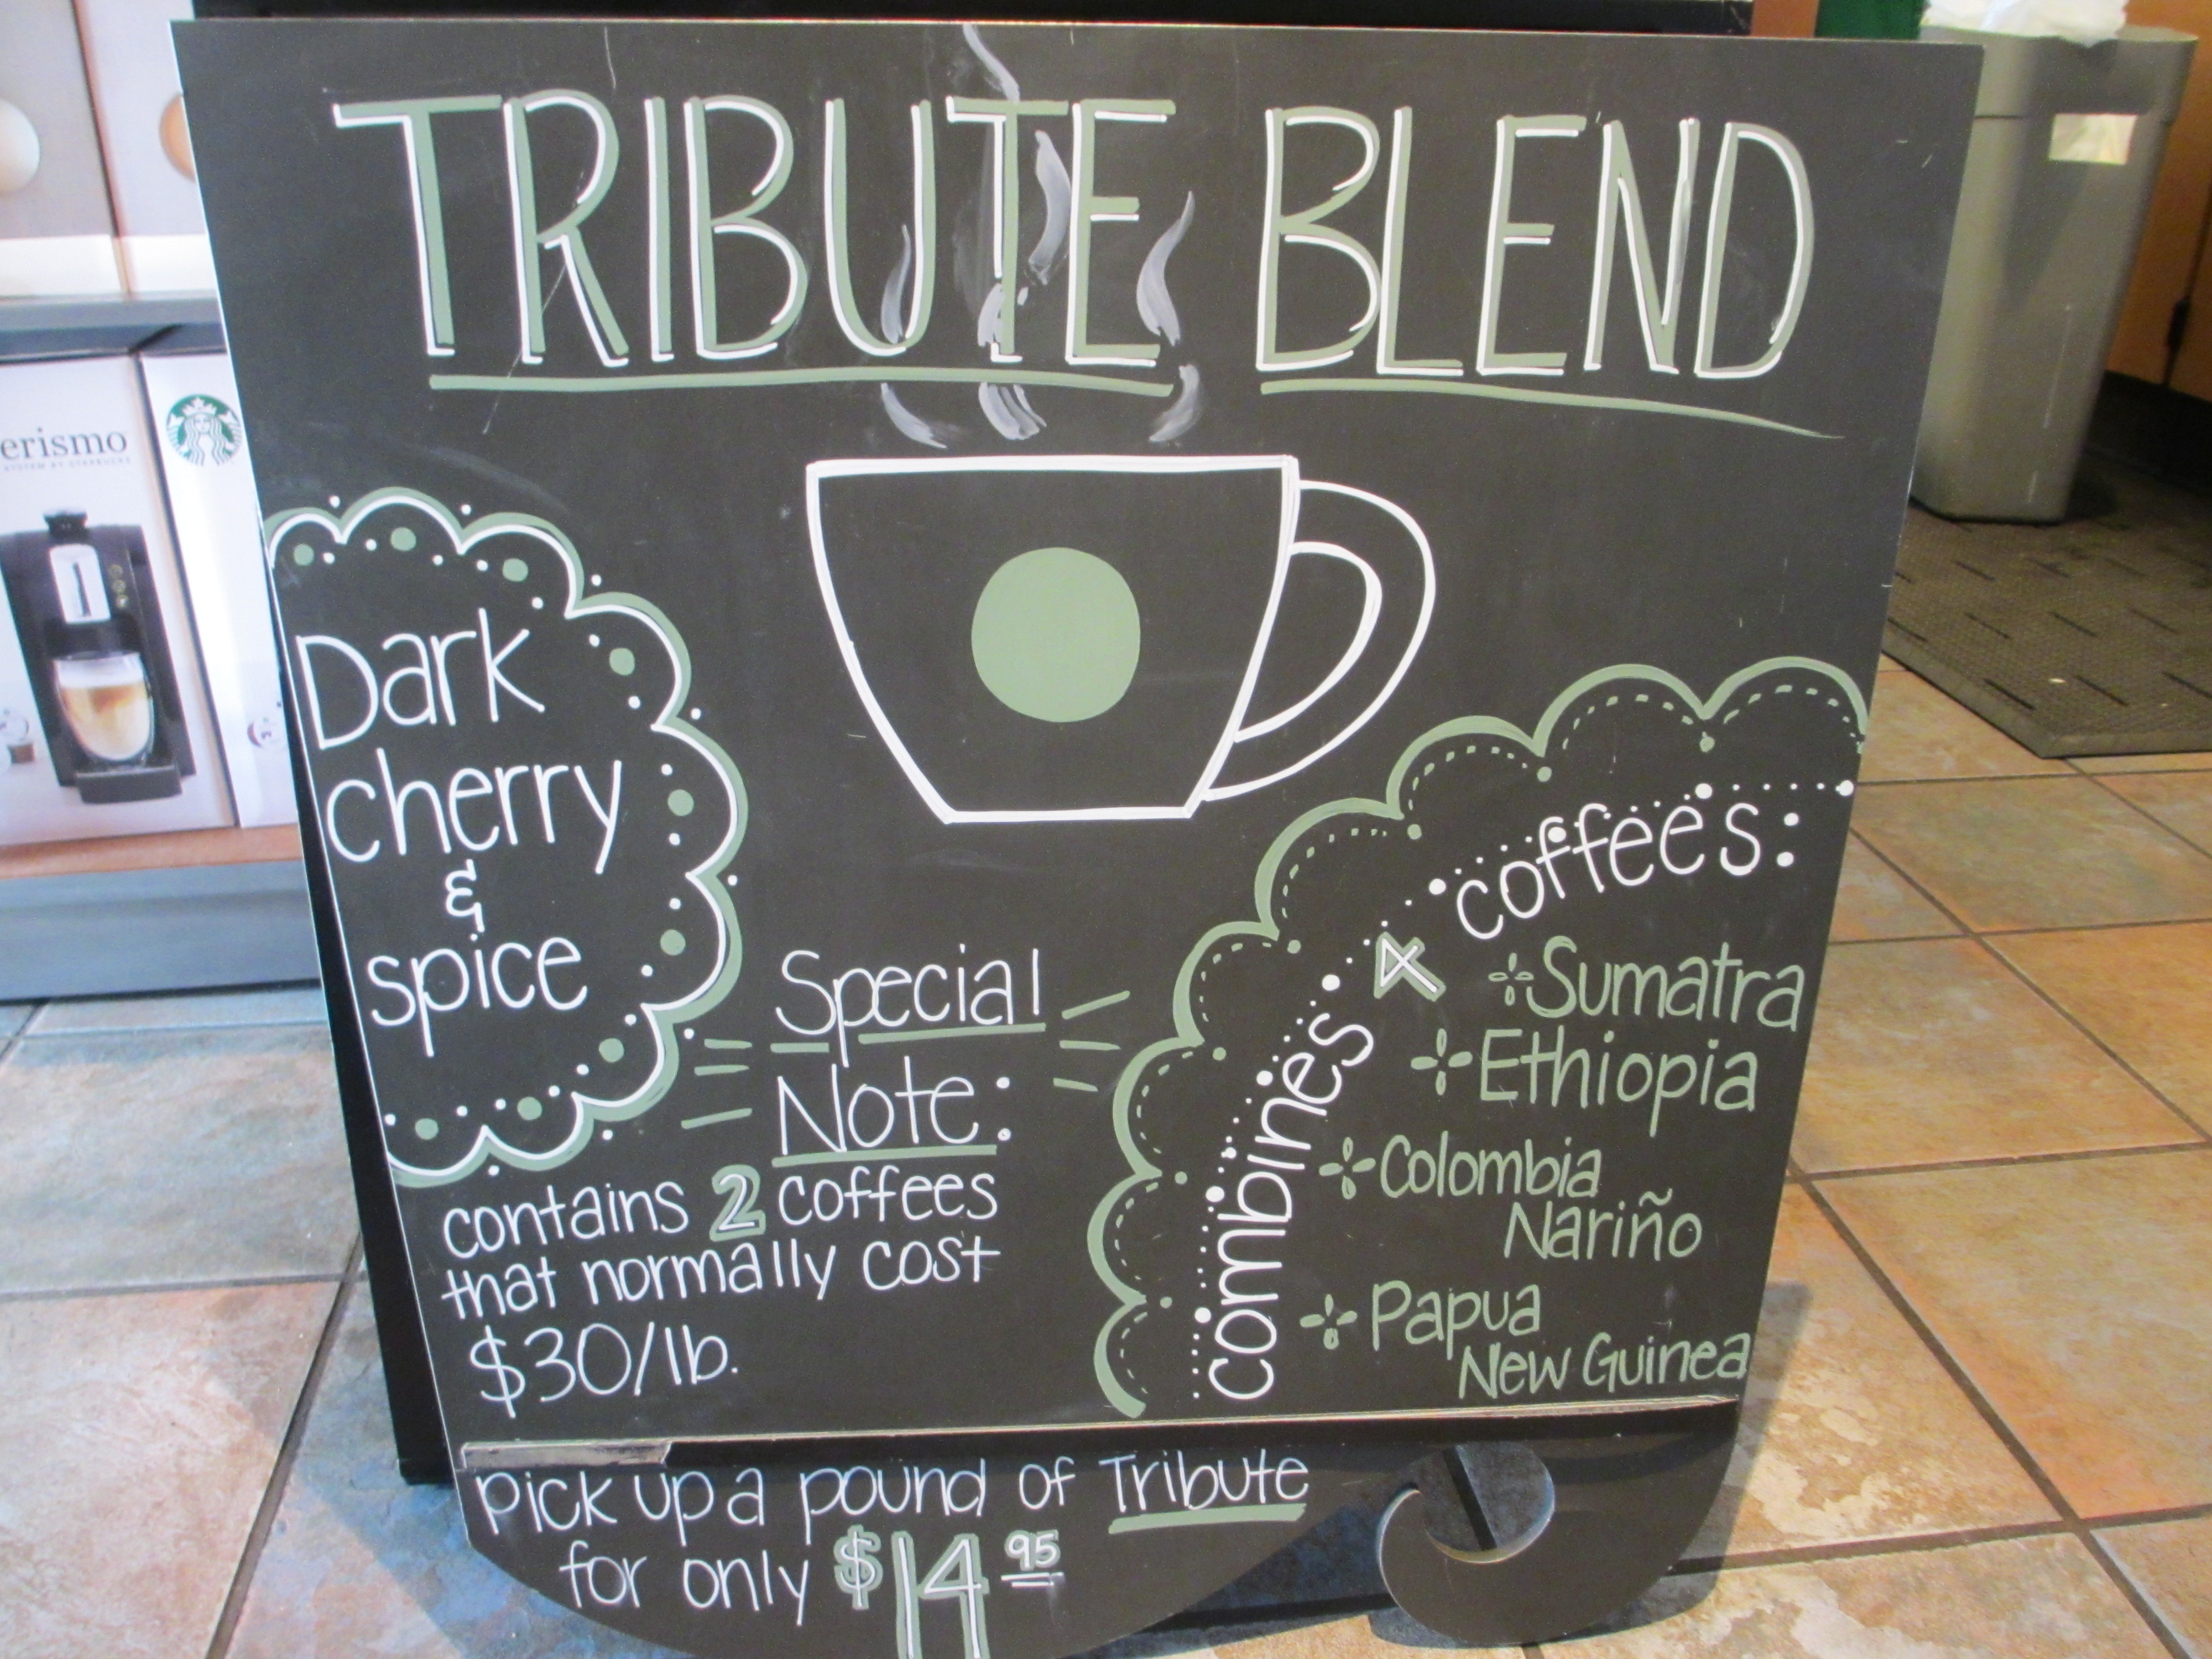 TRIBUTE BLEND
erismo
SYSTEM BY STARBUCKS
Dark
cherry
&
spice
Special
Note:
contains 2 coffees
that normally cost
$30/lb.
combines 4 coffees:
Sumatra
Ethiopia
Colombia
Nariño
Papua
New Guinea
pick up a pound of Tribute
for only $14 95